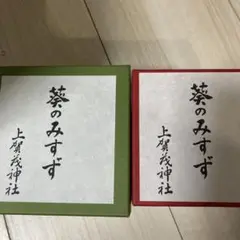 葵のみすず
上賀茂神社
葵のみすず
上賀茂神社